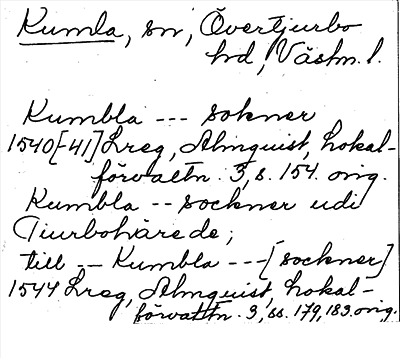 Kumla, sn, Övertjurbo
hd, Västm. l.
Kumbla --- sokner
1540[-41] Lreg, Almquist, Lokal-
förvaltn. 3, s. 154. orig.
Kumbla -- sockner udi
Tiurbohärede;
till -- Kumbla ---[sockner]
1544 Lreg, Almquist, Lokal-
förvaltn. 3, ss. 179, 183. orig.